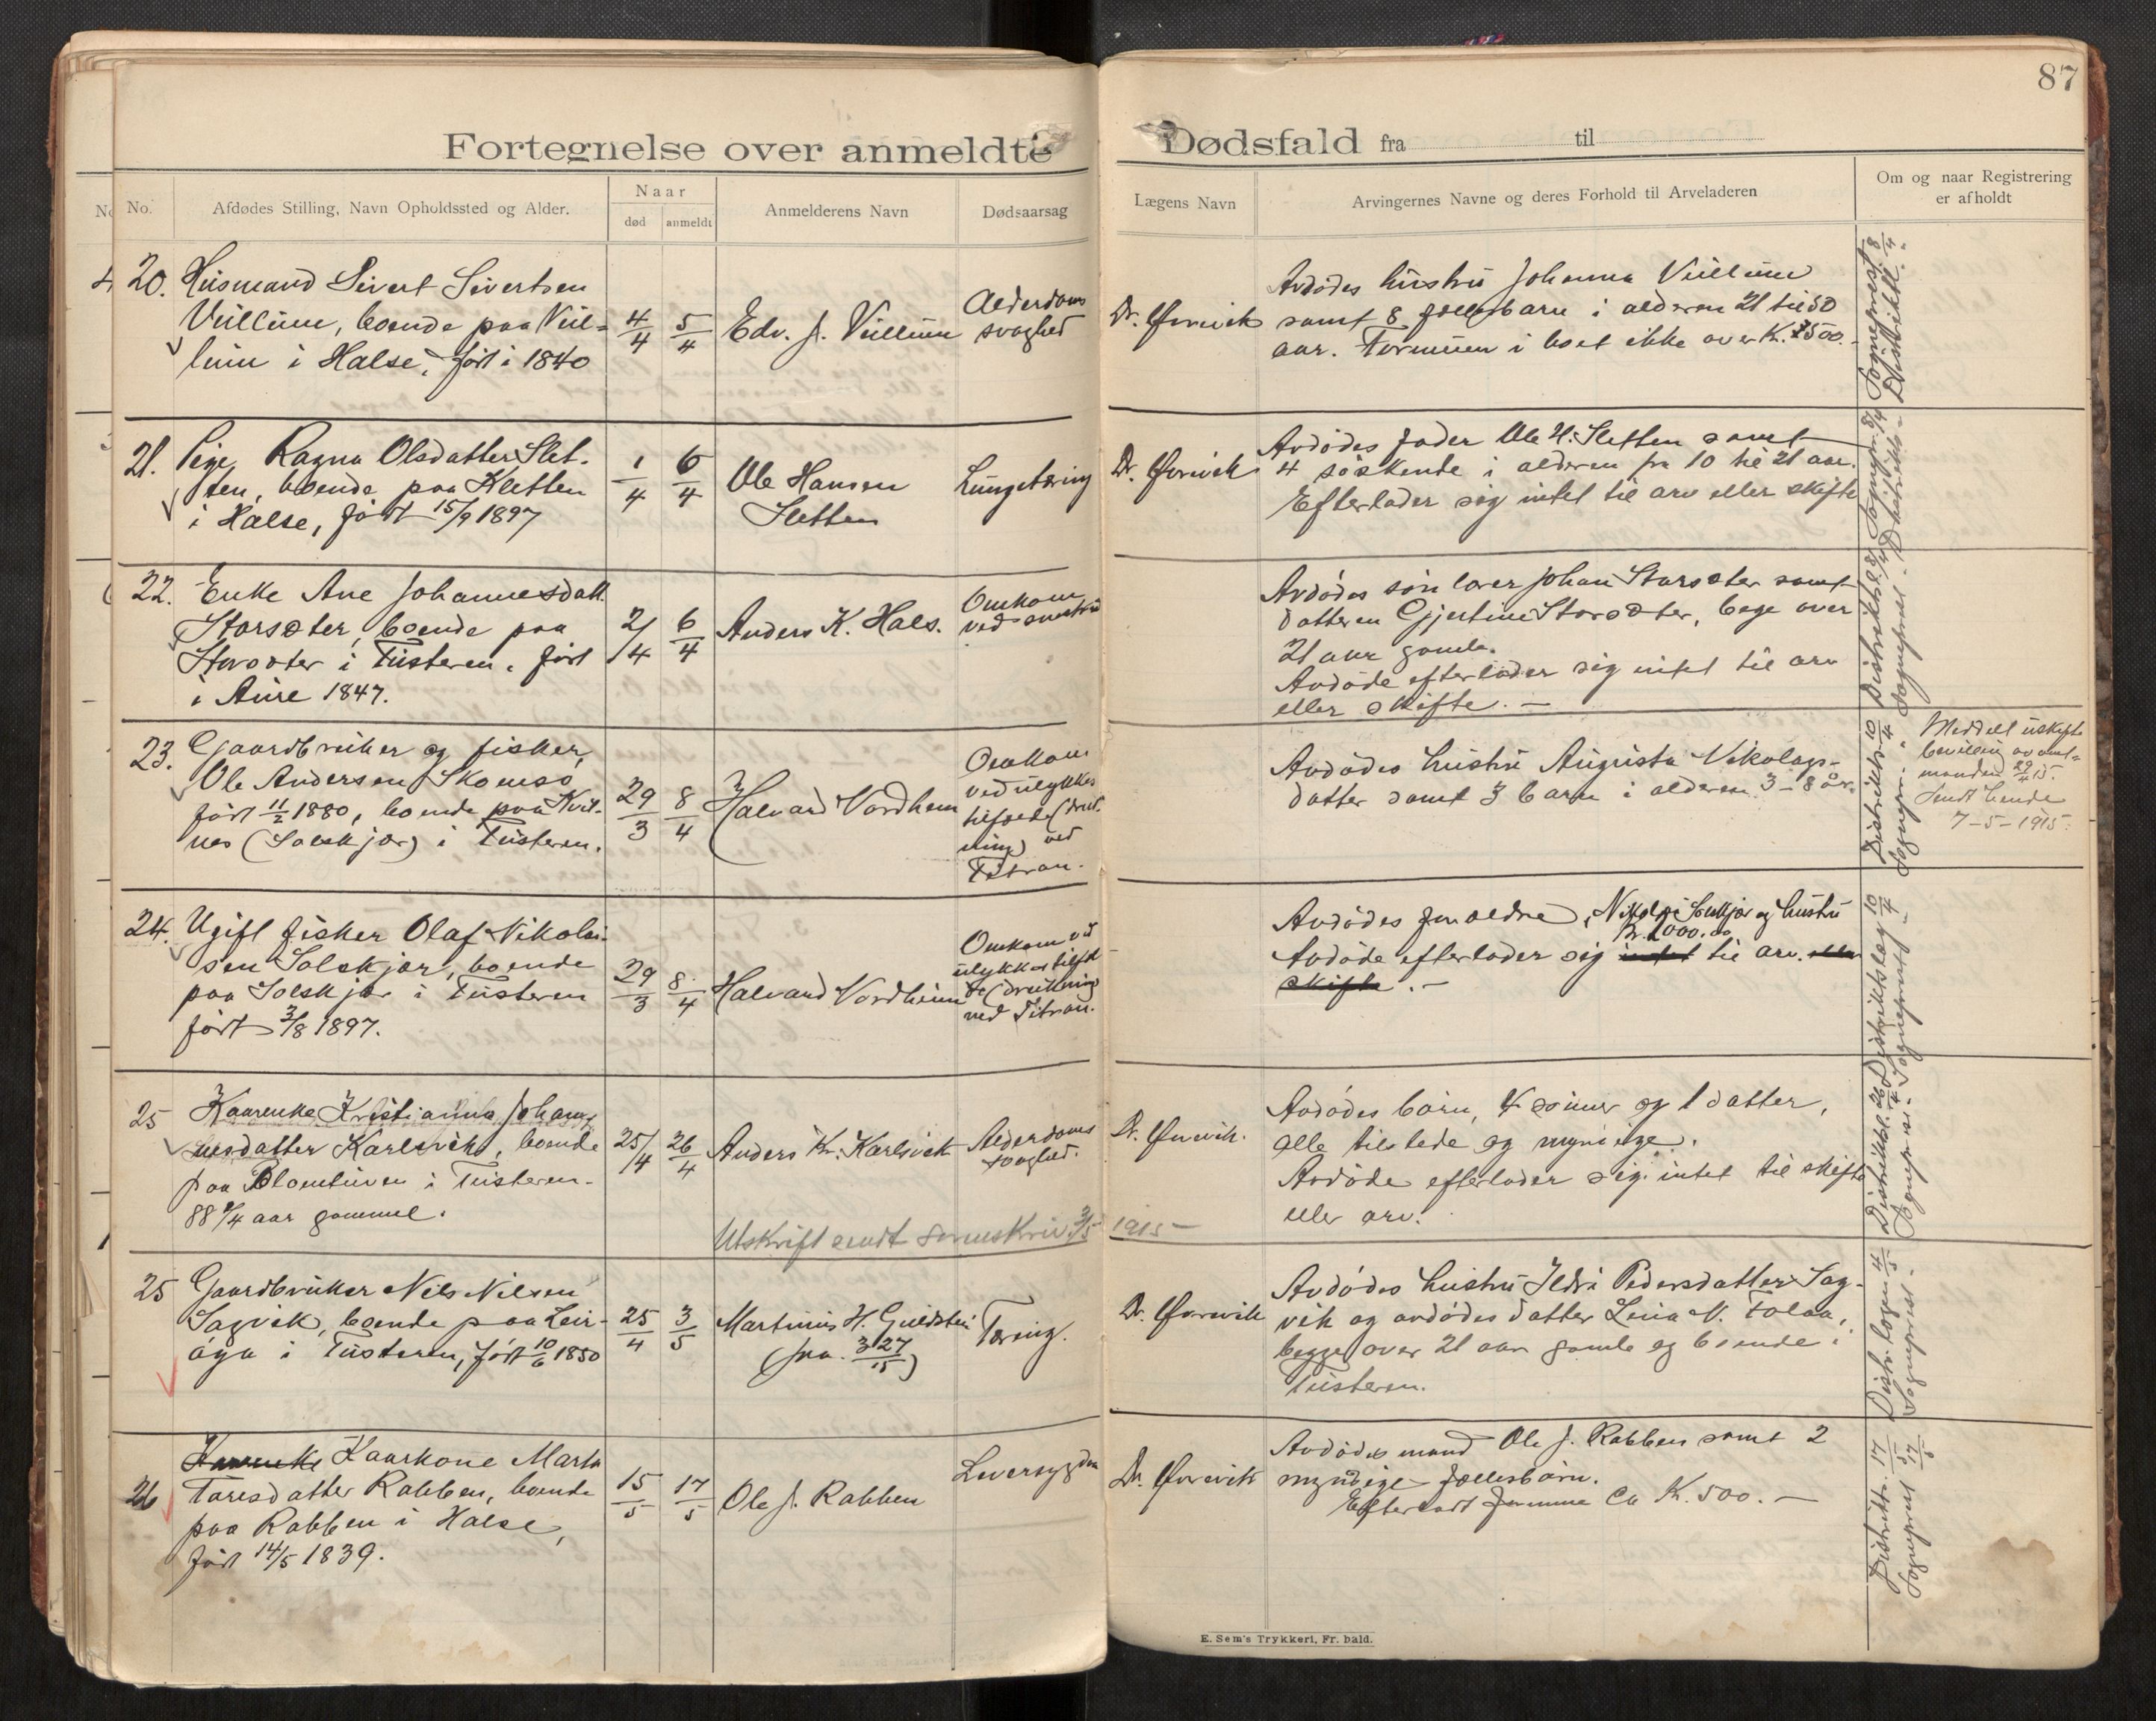 87
Fortegnelse over anmeldte Dødsfald fra til
No.
Afdødes Stilling, Navn Opholdssted og Alder.
Naar
død
anmeldt
Anmelderens Navn
Dødsaarsag
Lægens Navn
Arvingernes Navne og deres Forhold til Arveladeren
Om og naar Registrering
er afholdt
20. Husmand Sivert Sivertsen
Vullum, boende paa Vul=
lum i Halse, født i 1840
4/4
5/4
Edv. J. Vullum
Alderdoms
svaghed
Dr. Ørsvik
Avdødes hustru Johanna Vullum
samt 8 fællesbarn i alderen 21 til 50
aar. Formuen i boet ikke over K. 1500.-
Sogneprest 8/4
Distriktl. 4
21. Pige Ragna Olsdatter Slet-
ten, boende paa Kletten
i Halse, født 15/9 1897
1/4
6/4
Ole Hansen
Sletten
Lungetæring
Dr. Ørsvik
Avdødes fader Ole H. Sletten samt
4 søskende i alderen fra 10 til 21 aar.
Efterlader sig intet til arv eller skifte
22. Enke Ane Johannesdatt.
Storsæter, boende paa
Storsæter i Tusteren, født
i Aure 1847.
2/4
6/4
Anders K. Hals.
Omkom
ved
Avdødes søn Johan Storsæter samt
datteren Gjertine Storsæter, bege over
21 aar gamle.
Avdøde efterlader sig intet til arv
eller skifte. —
23. Gaardbruker og fisker,
Ole Andersen Skomsø
født 11/2 1880, boende paa Kvit-
nes (Solskjær) i Tusteren.
29/3
8/4
Halvard Nordheim
Omkom
ved ulykkes
tilfælde (druk-
ning) ved
Titran.
Avdødes hustru Augusta Nikolays-
datter samt 3 barn i alderen 3-8 år.
Distrikts 10/4
Sognepr. "
Meddelt uskifte
bevilling av amt-
manden 29/4 15.
Sendt hende
7-5-1915.
24. Ugift fisker Olaf Nikolai-
sen Solskjær, boende
paa Solskjær i Tusteren
født 3/8 1897.
29/3
8/4
Halvard Nordheim
Omkom ved
ulykkestilfæl
de (drukning
ved Titran.
Avdødes foreldre, Nikolai Solskjær og hustru
Kr. 1000.00
Avdøde efterlader sig intet til arv. eller
skifte. —
Distriktslæg 10/4
Sogneprest 4
25 Kaarenke Kristianna Johan-
nesdatter Karlsvik, boende
paa Blomtuven i Tusteren.
88 3/4 aar gammel.
25/4
26/4
Anders Kr. Karlsvik
Alderdoms
svaghed.
Dr. Ørsvik.
Avdødes børn, 4 sønner og 1 datter,
alle tilstede og myndige.
Avdøde efterlader sig intet til skifte
eller arv.
Distriktsl. 26/4
Utskrift sendt Sorenskriv. 3/5 1915 —
25 Gaardbruker Nils Nilsen
Sagvik, boende paa Leir-
øya i Tusteren, født 10/6 1850
25/4
3/5
Martinus H. Guldstein
(jna. 327/15)
Tæring.
Dr. Ørsvik
Avdødes hustru Ildri Pedersdatter Sag-
vik og avdødes datter Lina N. Tolaa,
begge over 21 aar gamle og boende i
Tusteren.
Distr. lægen 4/5
Sogneprest -
26 Kaarenke Kaarkone Marta
Taresdatter Rabben, boende
paa Rabben i Halse,
født 14/5 1839.
15/5
17/5
Ole J. Rabben
Leversygdom
Dr. Ørsvik
Avdødes mand Ole J. Rabben samt 2
myndige fællesbørn.
Efterladt formue ca K. 500. —
Distriktsl. 17/5
Sogneprest 17/5
E. Sem's Trykkeri, Fr. hald.